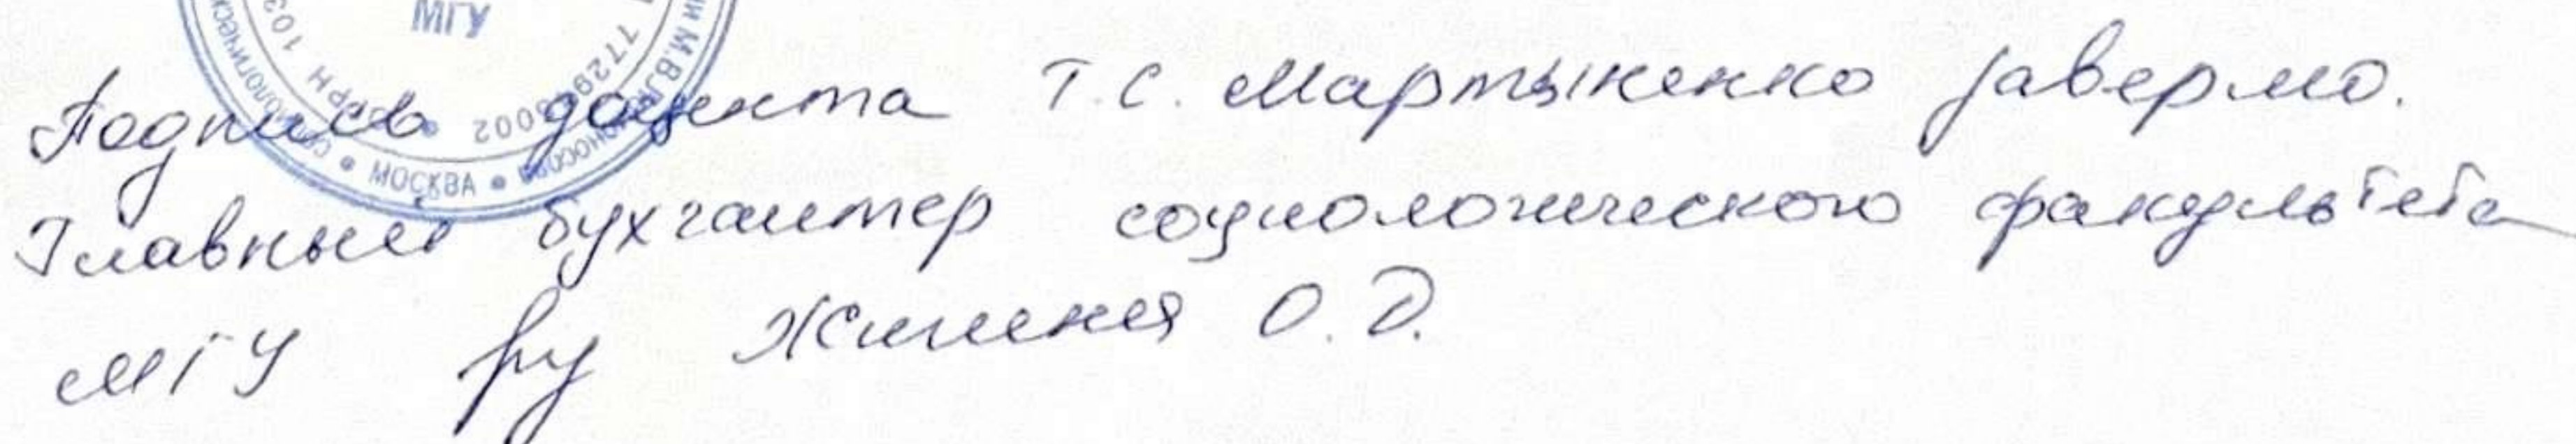 МГУ
МОСКВА
Подпись доцента Т.С. Мартыненко заверяю.
Главный бухгалтер социологического факультета
МГУ О.Д.